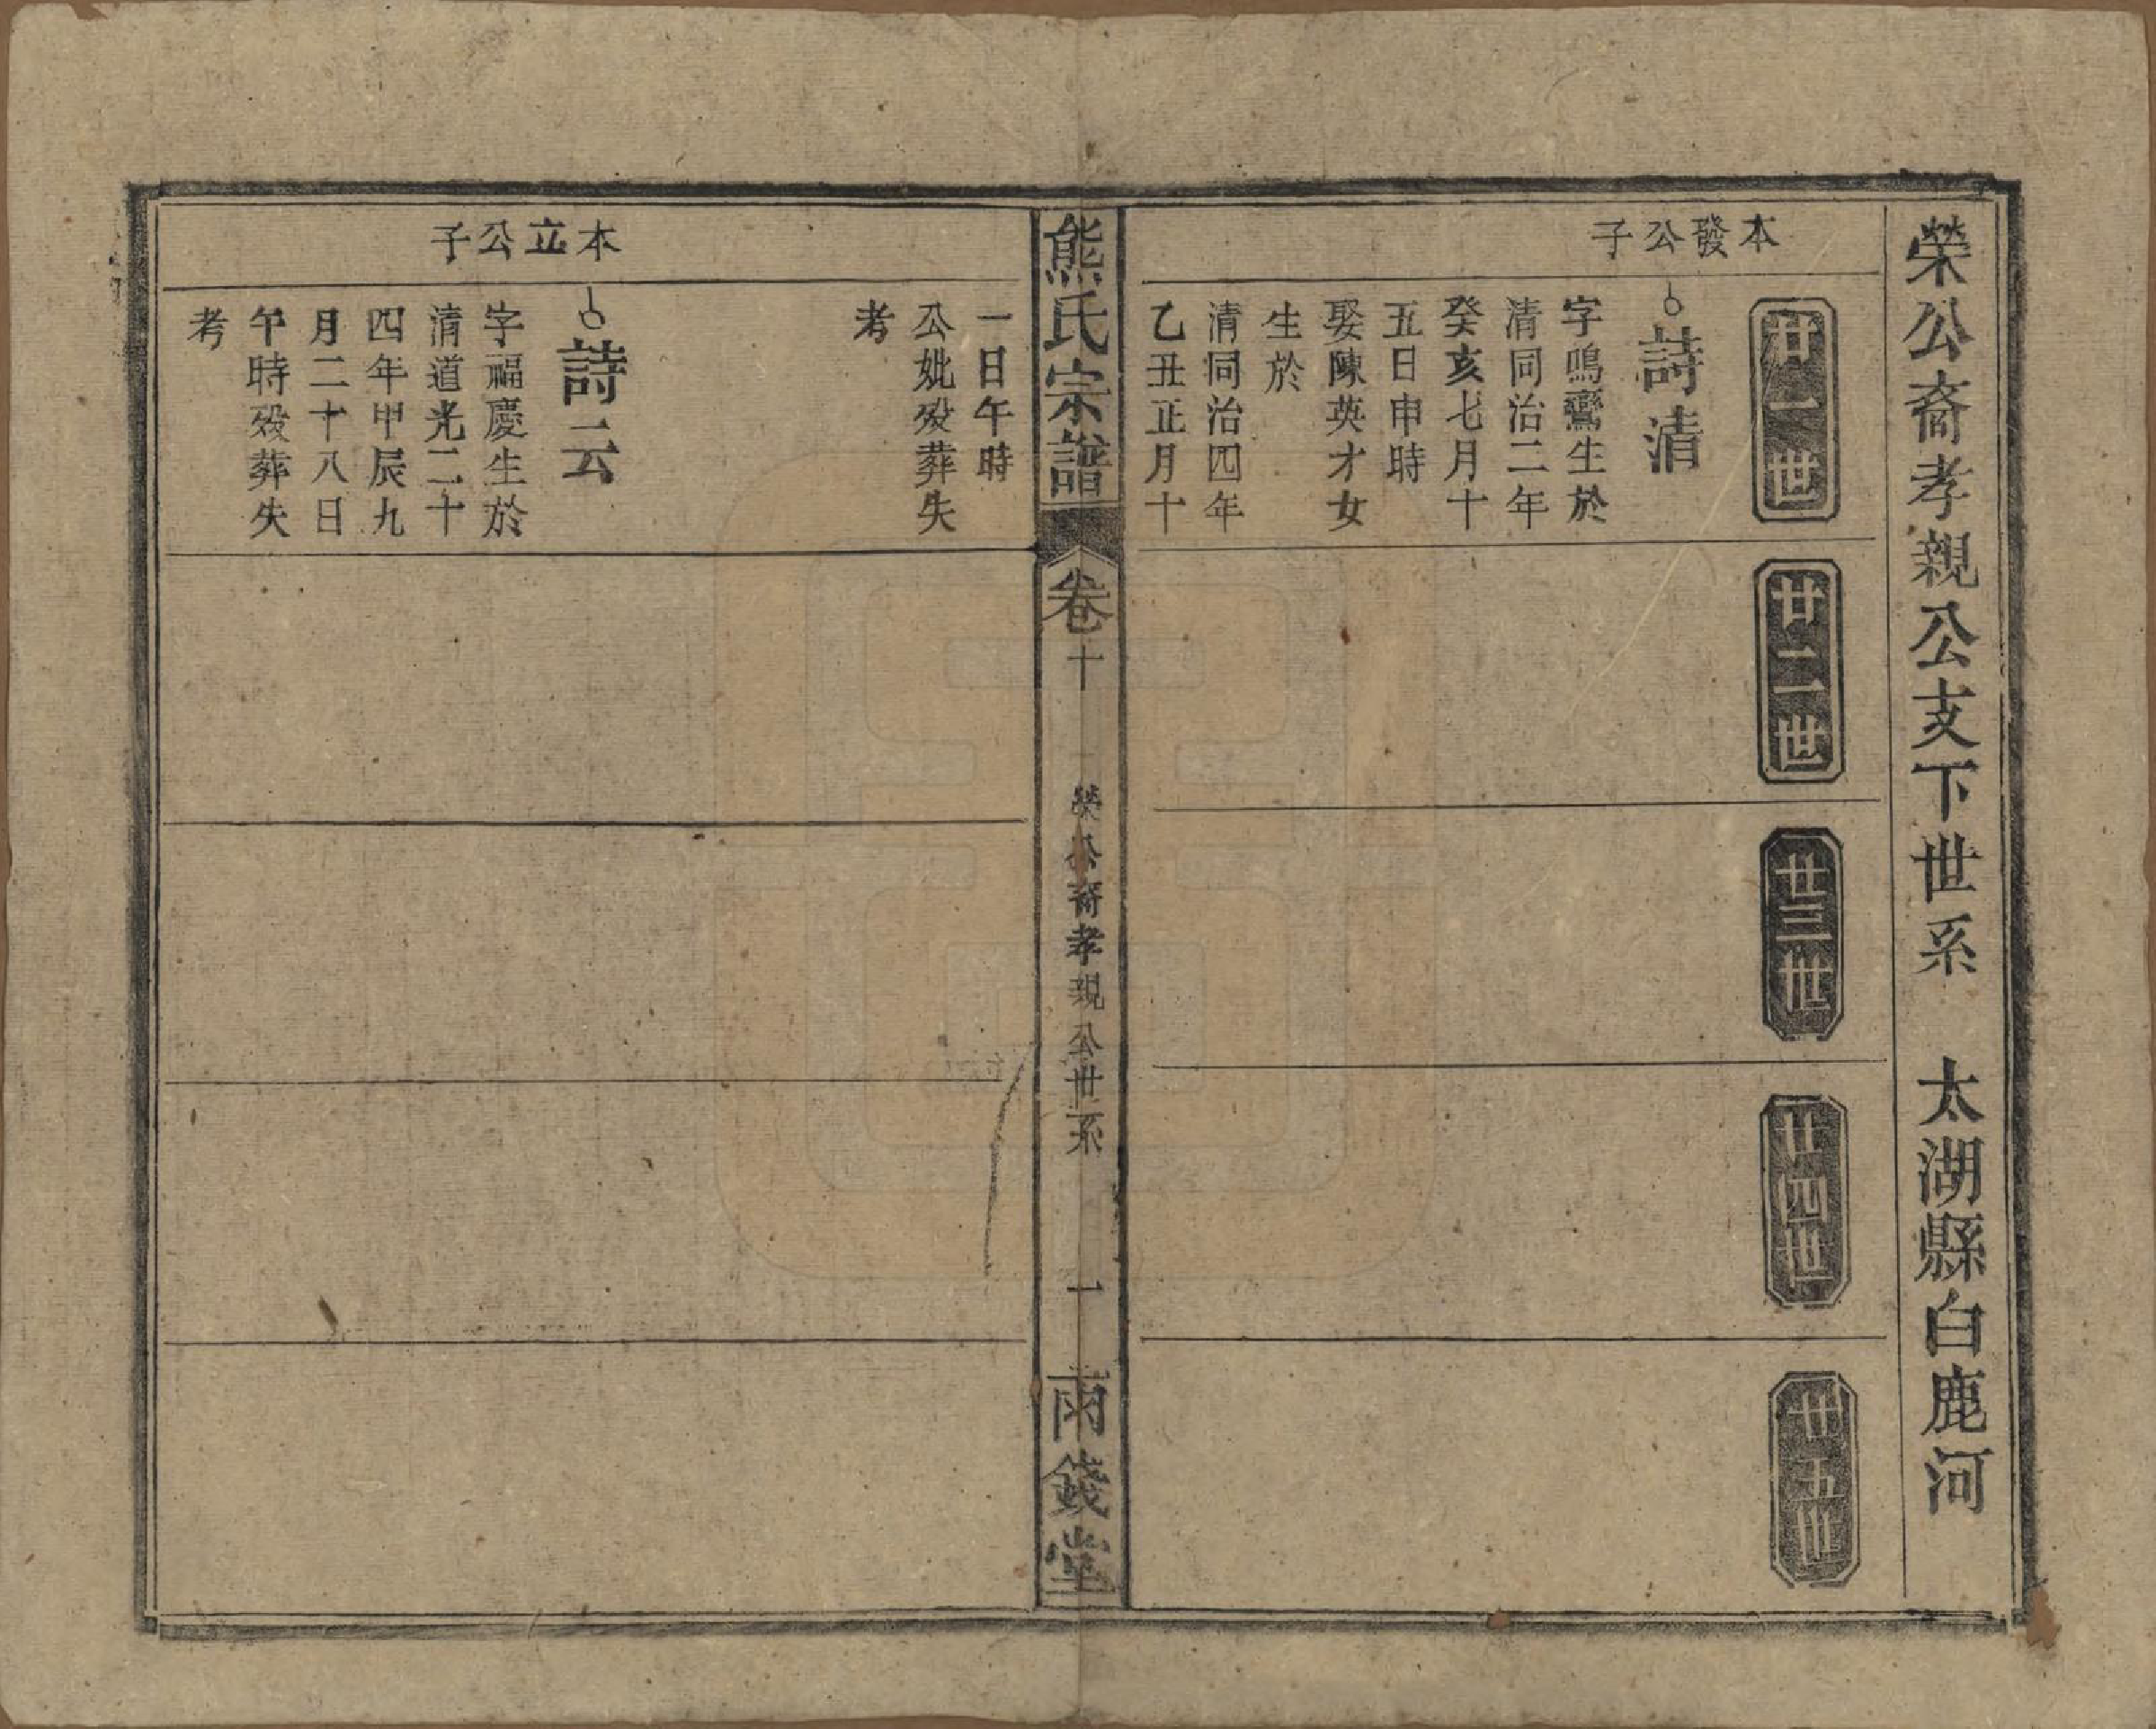 榮公裔孝親公支下世系　太湖縣白鹿河
廿一世
廿二世
廿三世
廿四世
廿五世
本發公子
詩清
字鳴鸞生於
清同治二年
癸亥七月十
五日申時
娶陳英才女
生於
清同治四年
乙丑正月十
熊氏宗譜
卷十
榮公裔孝親公世系
一
雨錢堂
一日午時
公妣歿葬失
考
本立公子
詩云
字福慶生於
清道光二十
四年甲辰九
月二十八日
午時歿葬失
考